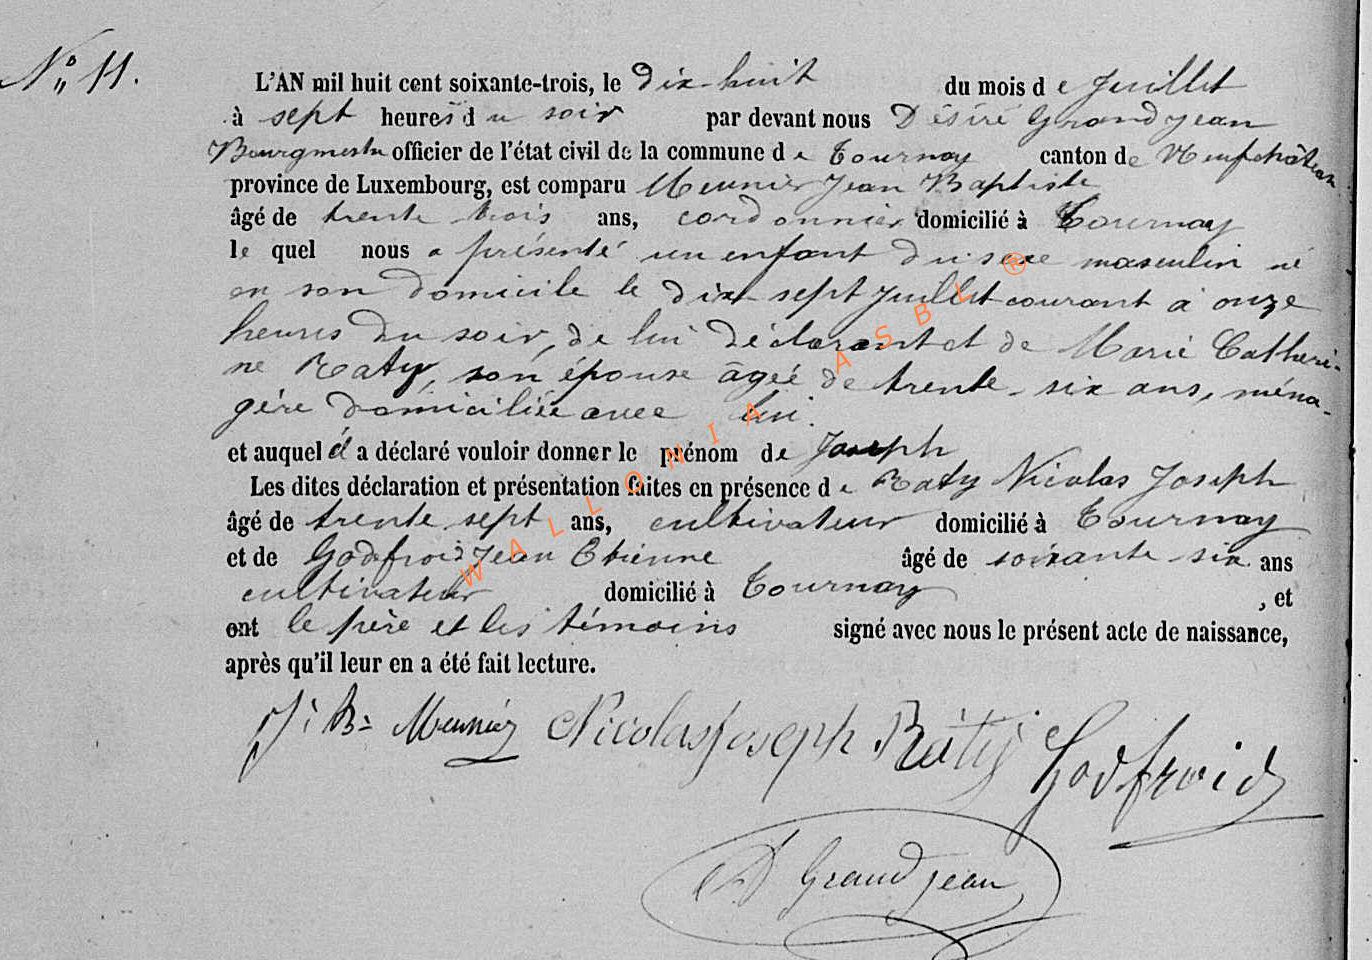 N° 11.
L'AN mil huit cent soixante-trois, le dix-huit du mois de Juillet
à sept heures du soir par devant nous Désiré Grandjean
Bourgmestre officier de l'état civil de la commune de Tournay canton de Neufchâteau
province de Luxembourg, est comparu Meunier Jean Baptiste
âgé de trente trois ans, cordonnier domicilié à Tournay
le quel nous a présenté un enfant du sexe masculin né
en son domicile le dix sept Juillet courant à onze
heures du soir, de lui déclarant et de Marie Catheri-
ne Raty, son épouse âgée de trente-six ans, ména-
gère domiciliée avec lui.
et auquel il a déclaré vouloir donner le prénom de Joseph
Les dites déclaration et présentation faites en présence de Raty Nicolas Joseph
âgé de trente sept ans, cultivateur domicilié à Tournay
et de Godefroid Jean Etienne âgé de soixante six ans
cultivateur domicilié à Tournay , et
ont le père et les témoins signé avec nous le présent acte de naissance,
après qu'il leur en a été fait lecture.
J. B. Meunier Nicolas Joseph Raty Godfroid
D Grandjean
WALLONIA ASBL ®